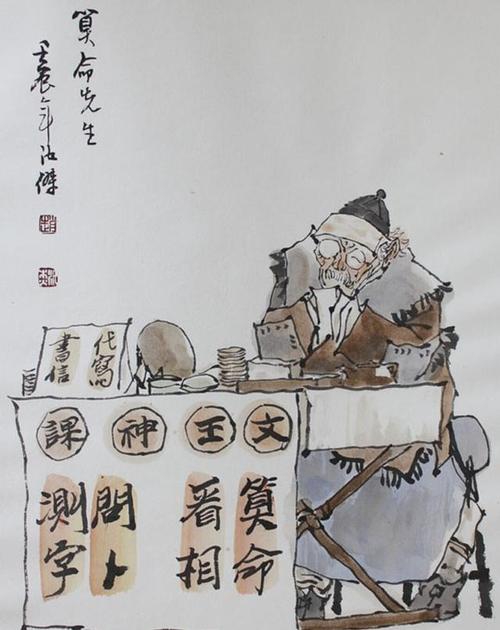 算命先生
壬辰年
代寫
書信
文王神課
算命
看相
問卜
測字